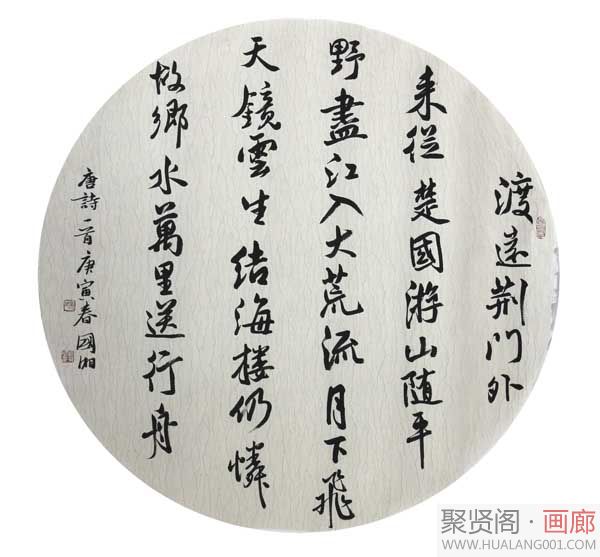 渡遠荆门外
来從楚國游山随平
野盡江入大荒流月下飛
天鏡雲生结海楼仍憐
故鄉水萬里送行舟
唐詩一首庚寅春國湘
聚贤阁·画廊
WWW.HUALANG001.COM